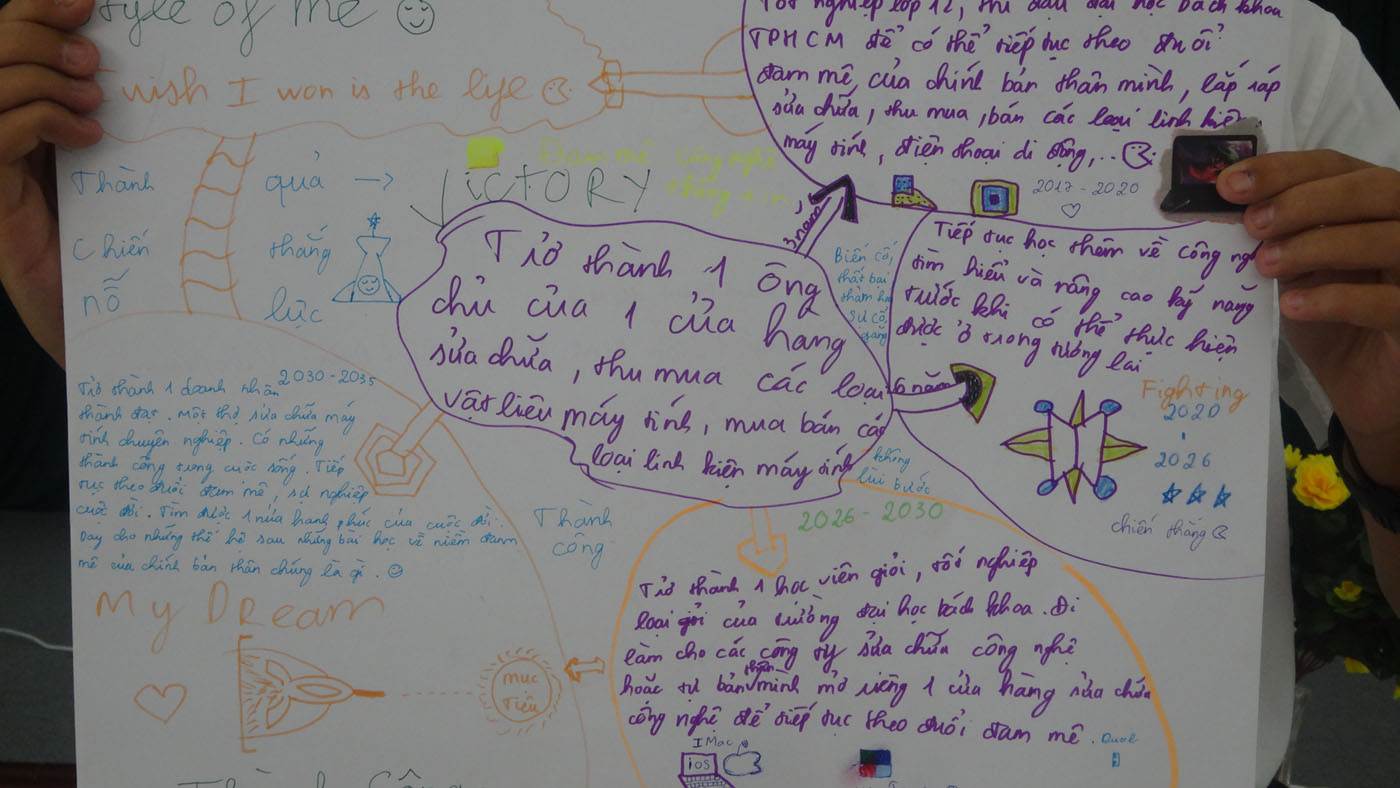 Style of Me
I wish I won is the life
Tốt nghiệp lớp 12, thi đậu đại học bách khoa
TPHCM để có thể tiếp tục theo đuổi
đam mê của chính bản thân mình, lắp ráp
sửa chữa, thu mua, bán các loại linh kiện
máy tính, điện thoại di động,...
2017 - 2020
Đam mê công nghệ
thông tin
VICTORY
Thành quả →
Chiến thắng
nỗ lực
3 năm
Trở thành 1 ông
chủ của 1 cửa hàng
sửa chữa, thu mua các loại
vật liệu máy tính, mua bán các
loại linh kiện máy tính
Biến cố,
thất bại
thảm hại
sự cố
gắng
Tiếp tục học thêm về công ngh
tìm hiểu và nâng cao kỹ năng
trước khi có thể thực hiện
được ở trong tương lai
6 năm
Fighting
2020
-
2026
chiến thắng
không
lùi bước
2030 - 2035
Trở thành 1 doanh nhân
thành đạt. Một thợ sửa chữa máy
tính chuyên nghiệp. Có những
thành công trong cuộc sống. Tiếp
tục theo đuổi đam mê, sự nghiệp
cuộc đời. Tìm được 1 nửa hạnh phúc của cuộc đời.
Dạy cho những thế hệ sau những bài học về niềm đam
mê của chính bản thân chúng là gì.
Thành
công
2026 - 2030
Trở thành 1 học viên giỏi, tốt nghiệp
loại giỏi của trường đại học bách khoa. Đi
làm cho các công ty sửa chữa công nghệ
hoặc tự bản thân mình mở riêng 1 cửa hàng sửa chữa
công nghệ để tiếp tục theo đuổi đam mê.
My Dream
mục
tiêu
IMac
iOS
Thành Công